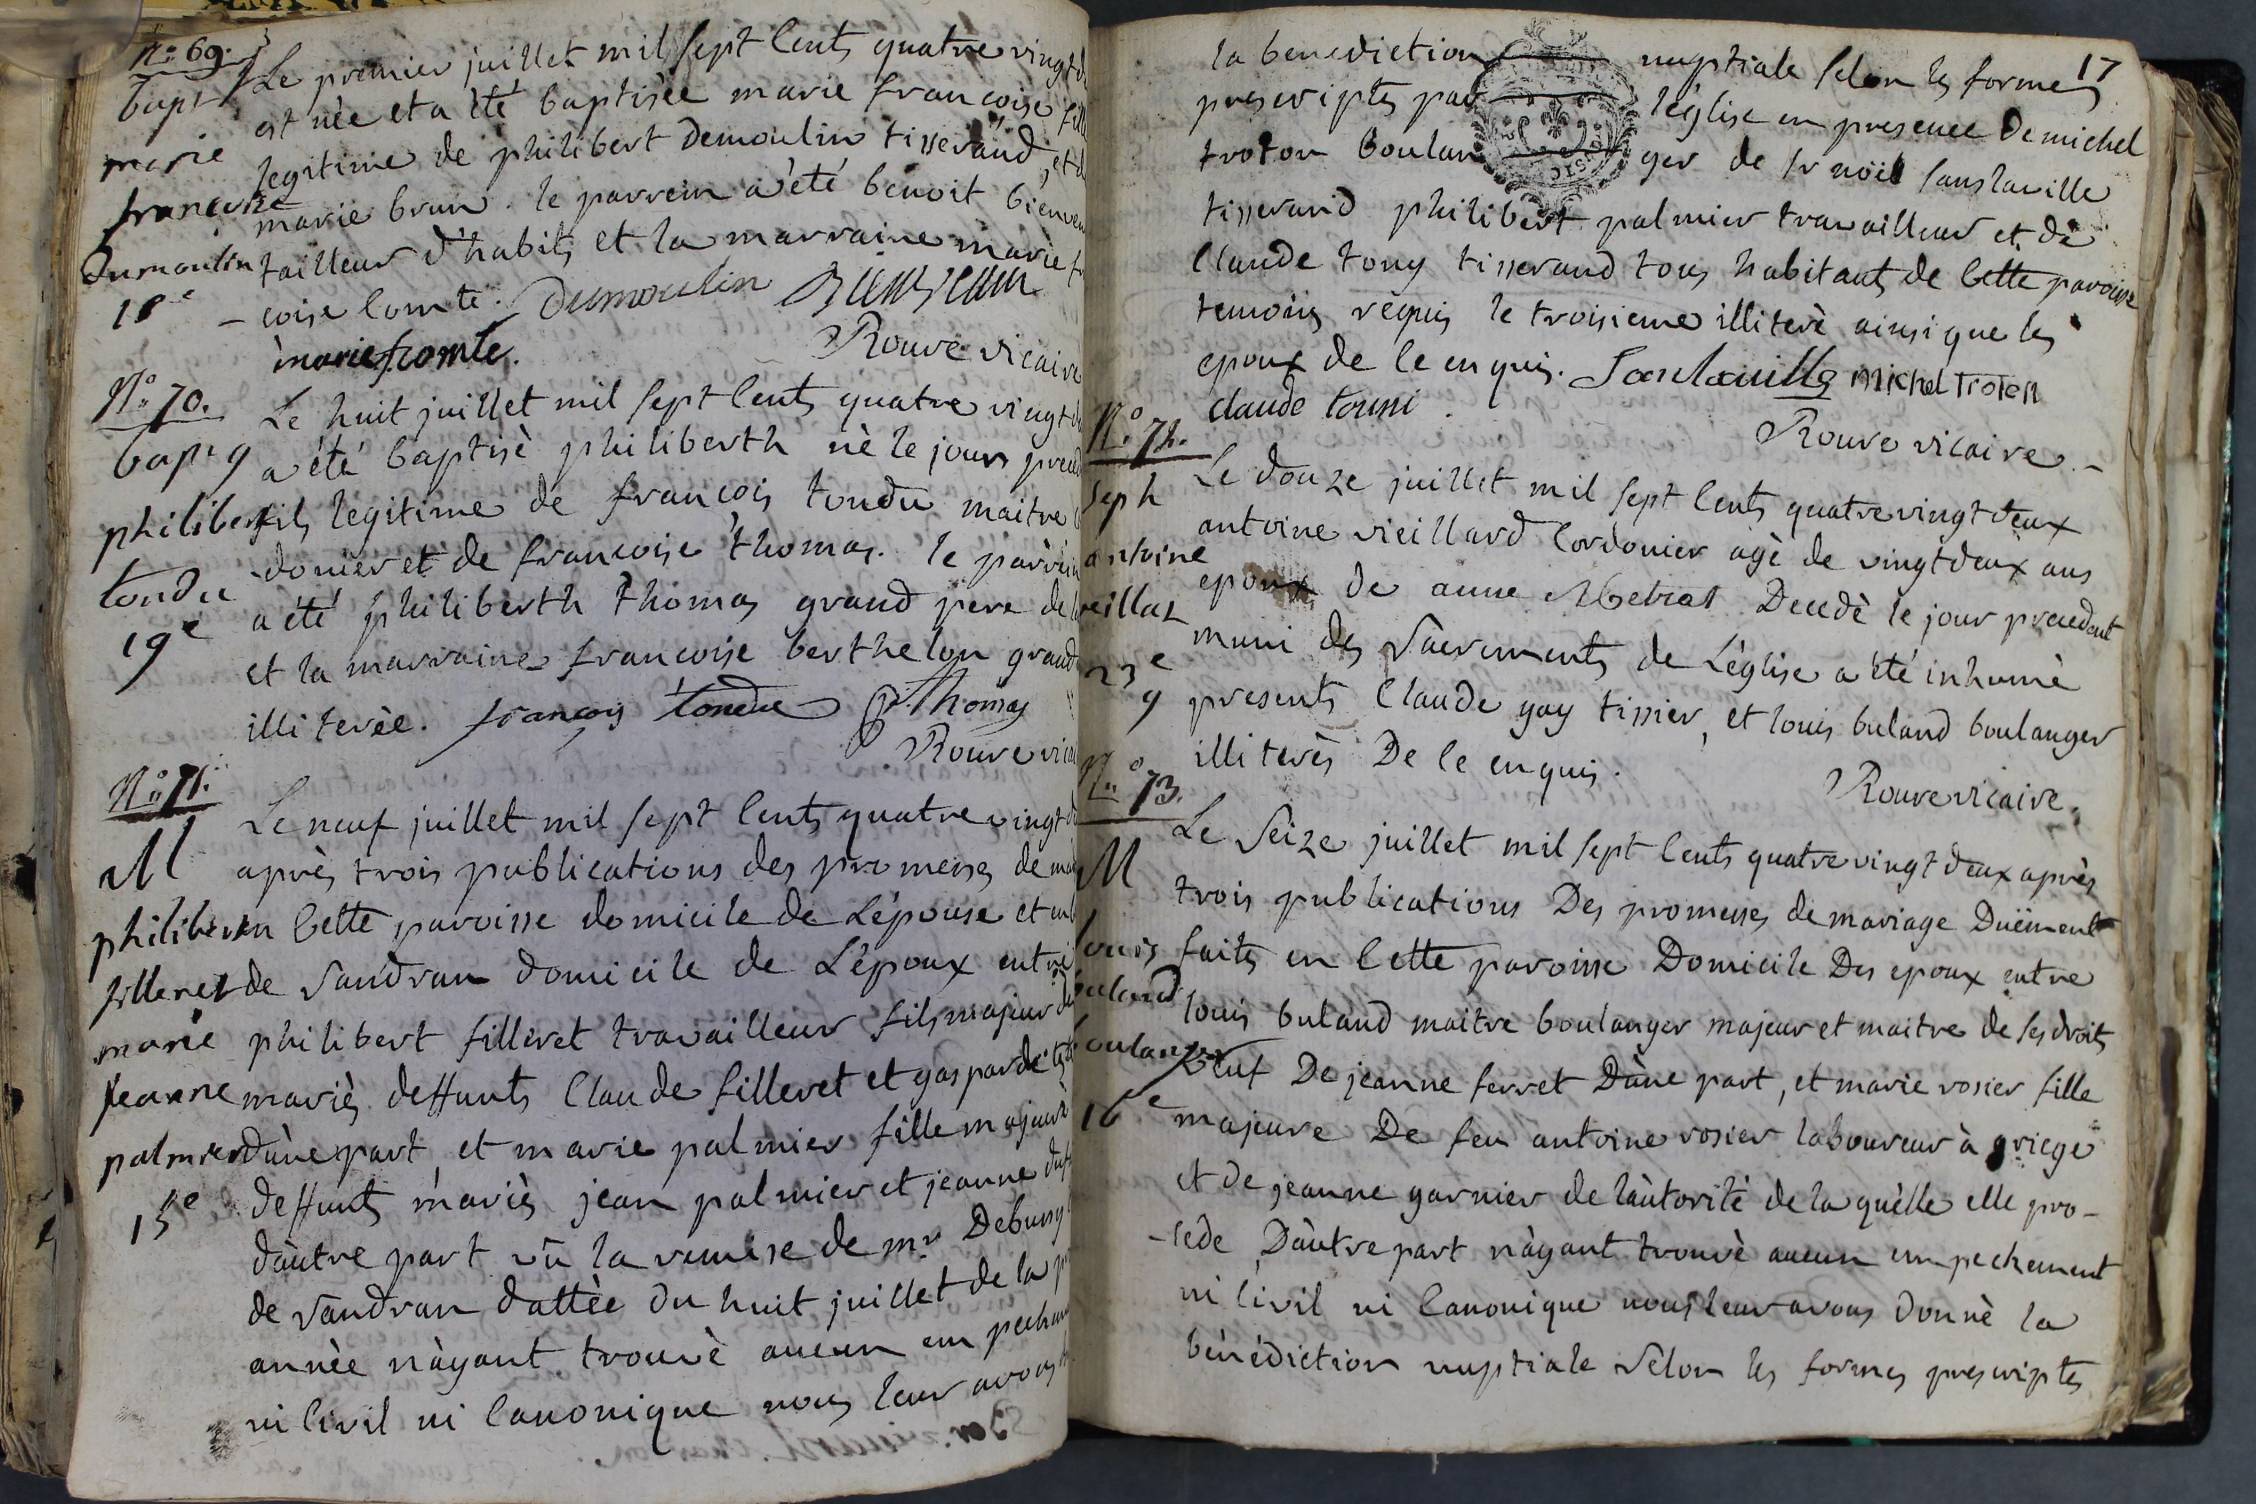 N.° 69.
Le premier juillet mil sept Cents quatre vingt
bapt
est née et a été baptisée marie françoise
marie
legitime de philibert Demoulin tisserand, et
françoise
marie brun. le parrein a été benoit
Dumoulin
tailleur d'habits et la marraine marie
18e
- çoise Comte. Dumoulin
marie f comte.
Rouve vicaire
N.° 70.
Le huit juillet mil sept Cents quatre vingt
bapt
a été baptisè philiberth nè le jours
philibert
fils legitime de françois tondu maitre
tondu
-donier et de françoise thomas. le parrein
19e
a été philiberth thomas grand pere de
et la marraine françoise berthelon grand
illiterèe. françois tondu p. Thomas
Rouve
N.° 71.
Le neuf juillet mil sept Cents quatre vingt
M
après trois publications des promesses de
philibert
en Cette paroisse domicile de L'épouse et
filleret
de Vandran domicile de L'époux entre
marie
philibert filleret travailleur fils majeur
jeanne
mariès deffunts Claude filleret et gasparde
palmier
d'une part, et marie palmier fille majeure
15e
deffunts mariès jean palmier et jeanne
d'autre part vû la remise de mr Debussy
de Vandran dattèe du huit juillet de la
annèe n'ayant trouvè aucun em
ni Civil ni Canonique nous leur avons
17
la benediction nuptiale selon les formes
prescriptes par l'église en presence De michel
troton boulan ger de sr noël sanslaville
tisserand philibert palmier travailleur et de
Claude tony tisserand tous habitants de Cette paroisse
temoins requis le troisieme illiterè ainsi que les
epoux de Ce enquis. Sanlaville Michel Troton
claude tonni.
Rouve vicaire.-
N.° 72.
Le douze juillet mil sept Cents quatre vingt deux
Seph
antoine vieillard Cordonier agè de vingt deux ans
antoine
epoux de anne Decedè le jour precedent
muni des Sacrements de L'église a été inhumè
23e
presents Claude gay tissier, et louis buland boulanger
9
illiterès De Ce enquis.
Rouve vicaire.
N.° 73.
Le Seize juillet mil sept Cents quatre vingt deux après
M
trois publications Des promesses de mariage Duëment
louis
faites en Cette paroisse Domicile Des epoux entre
buland
louis buland maitre boulanger majeur et maitre de ses droits
boulanger
Veuf De jeanne ferret D'une part, et marie rosier fille
16e
majeure De feu antoine rosier laboureur à griege
et de jeanne garnier de l'autorité de la quèlle elle pro-
-Cede, D'autre part n'ayant trouvè aucun em pechement
ni Civil ni Canonique nous leur avons Donnè la
bènédiction nuptiale Selon les formes prescriptes